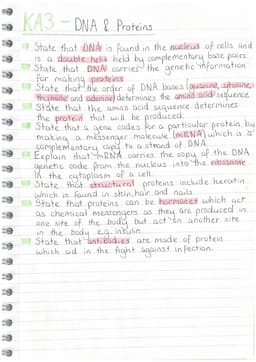 KA3 - DNA & Proteins
State that DNA is found in the nucleus of cells and
is a double helix held by complementary base pairs.
State that DNA carries the genetic information
for making proteins
State that the order of DNA bases (guanine, cytosine,
thymine and adenine) determines the amino acid sequence
State that the amino acid sequence determines
the protein that will be produced.
State that a gene codes for a particular protein by
making a messenger molecule (mRNA) which is a
complementary copy to a strand of DNA.
Explain that mRNA carries the copy of the DNA
genetic code from the nucleus into the ribosome
in the cytoplasm of a cell.
State that structural proteins include keratin
which is found in skin, hair and nails
State that proteins can be hormones which act
as chemical messengers as they are produced in
one site of the body but act in another site
in the body e.g. insulin.
State that antibodies are made of protein
which aid in the fight against infection.